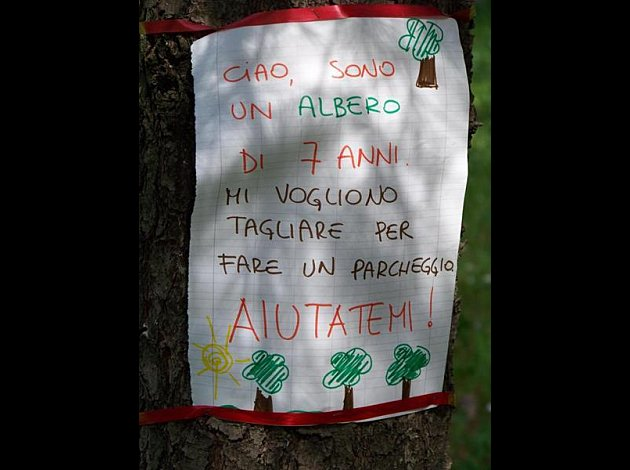 CIAO, SONO
UN ALBERO
DI 7 ANNI.
MI VOGLIONO
TAGLIARE PER
FARE UN PARCHEGGIO.
AIUTATEMI!